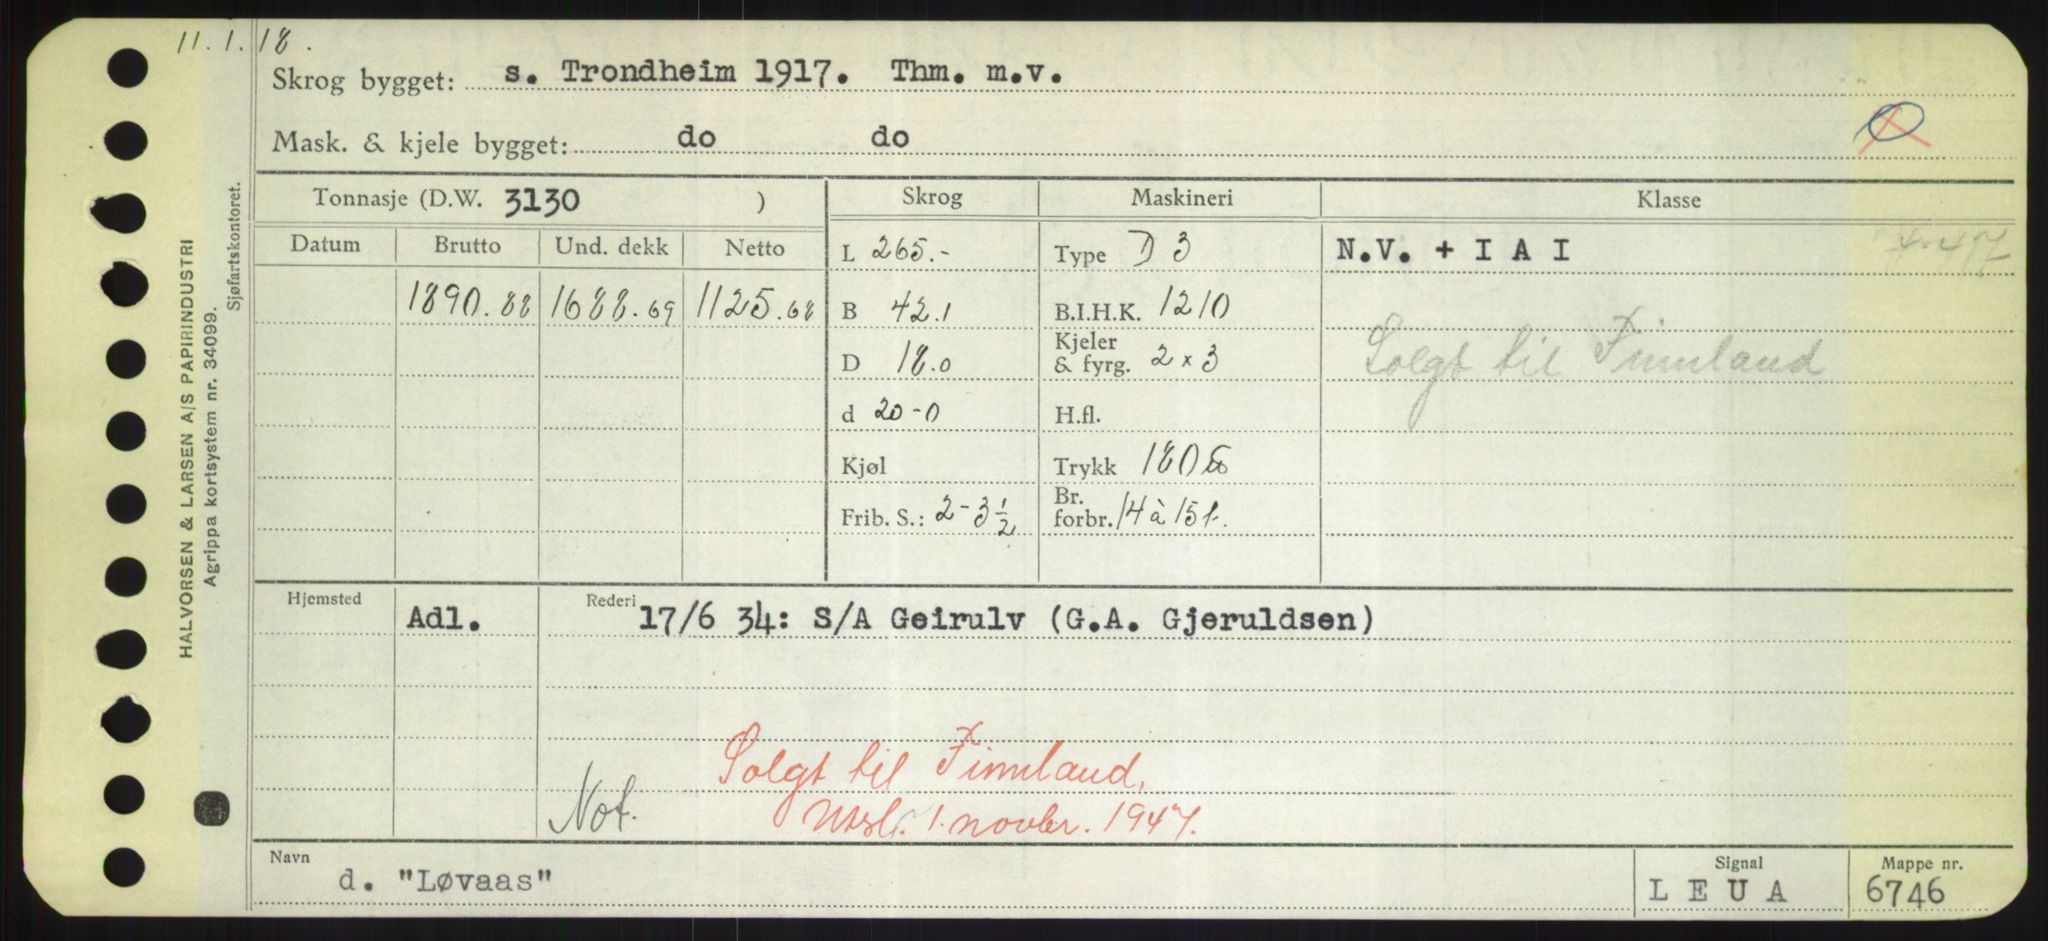 11.1.18.
Skrog bygget: s. Trondheim 1917. Thm. m.v.
Mask. & kjele bygget: do do
Tonnasje (D.W. 3130 ) Skrog Maskineri Klasse
Datum Brutto Und. dekk Netto
L 265.- Type D 3 N.V. + I A I
1890.88 1688.69 1125.68 B 42.1 B.I.H.K. 1210
Solgt til Finnland
D 18.0 Kjeler & fyrg. 2 x 3
d 20-0 H.fl.
Kjøl Trykk 180 lb
Frib. S.: 2-3 1/2 Br. forbr. 14 à 15 t.
Hjemsted Adl. Rederi 17/6 34: S/A Geirulv (G.A. Gjeruldsen)
Solgt til Finnland,
Not. Utsl. 1. novbr. 1947.
Navn Signal Mappe nr.
d. "Løvaas" L E U A 6746
HALVORSEN & LARSEN A/S PAPIRINDUSTRI
Agrippa kortsystem nr. 34099.
Sjøfartskontoret.